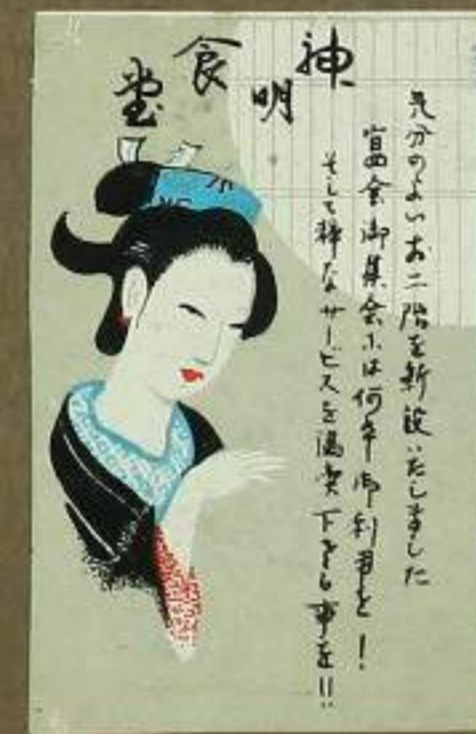 神明食堂
気分のよいお二階を新設いたしました
宴会御集会には何卒御利用を!
そして粋なサービスを満喫下さる事を!!